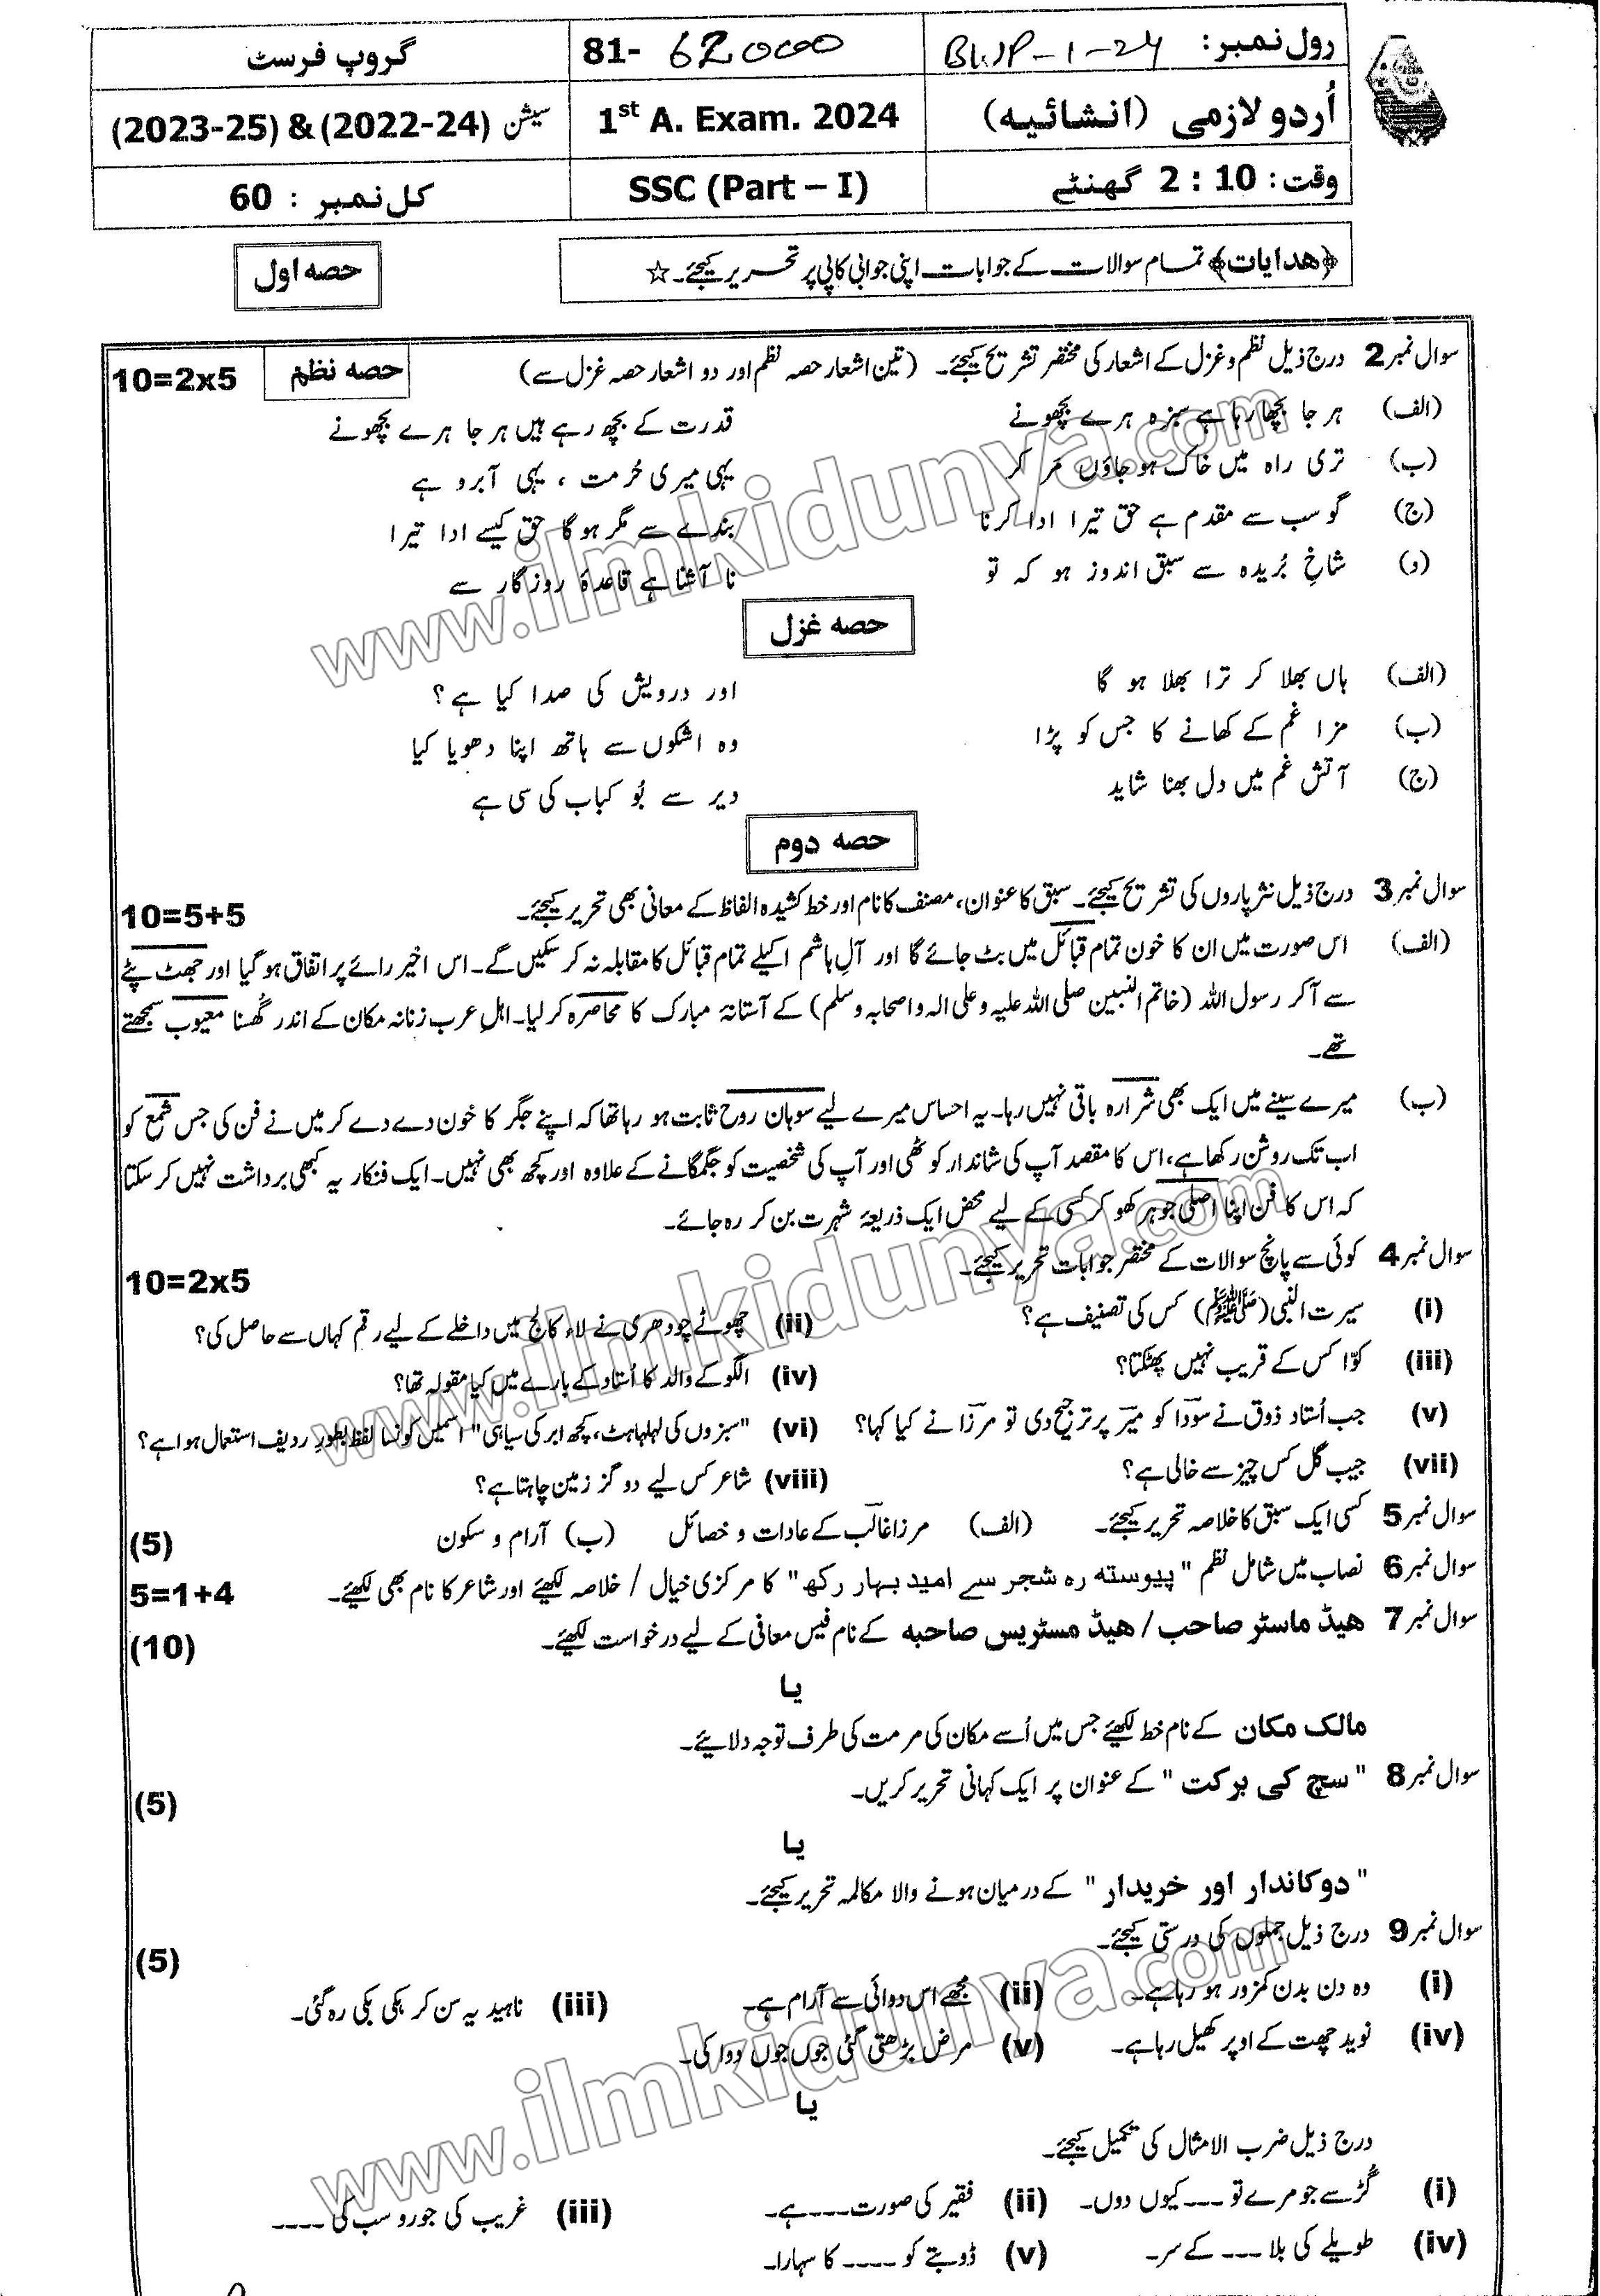 رول نمبر: BWP-1-24
81- 62000
گروپ فرسٹ
اُردو لازمی (انشائیہ)
1st A. Exam. 2024
سیشن (2022-24) & (2023-25)
وقت: 2 : 10 گھنٹے
SSC (Part – I)
کل نمبر : 60
﴿ھدایات﴾ تمام سوالات کے جوابات اپنی جوابی کاپی پر تحریر کیجئے۔ ☆
حصہ اول
سوال نمبر 2 درج ذیل نظم و غزل کے اشعار کی مختصر تشریح کیجئے۔ (تین اشعار حصہ نظم اور دو اشعار حصہ غزل سے) حصہ نظم 10=2x5
(الف) ہر جا بچھا رہا ہے سبزہ ہرے بچھونے قدرت کے بچھ رہے ہیں ہر جا ہرے بچھونے
(ب) تری راہ میں خاک ہو جاؤں مَر کر یہی میری حُرمت ، یہی آبرو ہے
(ج) گو سب سے مقدم ہے حق تیرا ادا کرنا بندے سے مگر ہو گا حق کیسے ادا تیرا
(د) شاخِ بُریدہ سے سبق اندوز ہو کہ تو نا آشنا ہے قاعدۂ روزگار سے
حصہ غزل
(الف) ہاں بھلا کر ترا بھلا ہو گا اور درویش کی صدا کیا ہے؟
(ب) مزا غم کے کھانے کا جس کو پڑا وہ اشکوں سے ہاتھ اپنا دھویا کیا
(ج) آتش غم میں دل بھنا شاید دیر سے بُو کباب کی سی ہے
حصہ دوم
سوال نمبر 3 درج ذیل نثر پاروں کی تشریح کیجئے۔ سبق کا عنوان، مصنف کا نام اور خط کشیدہ الفاظ کے معانی بھی تحریر کیجئے۔ 10=5+5
(الف) اس صورت میں ان کا خون تمام قبائل میں بٹ جائے گا اور آلِ ہاشم اکیلے تمام قبائل کا مقابلہ نہ کر سکیں گے۔ اس اخیر رائے پر اتفاق ہو گیا اور جھٹ پٹے
سے آکر رسول اللہ (خاتم النبیین صلی اللہ علیہ وعلی الہ واصحابہ وسلم) کے آستانۂ مبارک کا محاصرہ کر لیا۔ اہلِ عرب زنانہ مکان کے اندر گھُسنا معیوب سمجھتے
تھے۔
(ب) میرے سینے میں ایک بھی شرارہ باقی نہیں رہا۔ یہ احساس میرے لیے سوہان روح ثابت ہو رہا تھا کہ اپنے جگر کا خون دے دے کر میں نے فن کی جس شمع کو
اب تک روشن رکھا ہے، اس کا مقصد آپ کی شاندار کوٹھی اور آپ کی شخصیت کو جگمگانے کے علاوہ اور کچھ بھی نہیں۔ ایک فنکار یہ کبھی برداشت نہیں کر سکتا
کہ اس کا فن اپنا اصلی جوہر کھو کر کسی کے لیے محض ایک ذریعۂ شہرت بن کر رہ جائے۔
سوال نمبر 4 کوئی سے پانچ سوالات کے مختصر جوابات تحریر کیجئے۔ 10=2x5
(i) سیرت النبی (ﷺ) کس کی تصنیف ہے؟ (ii) چھوٹے چودھری نے لاء کالج میں داخلے کے لیے رقم کہاں سے حاصل کی؟
(iii) کوّا کس کے قریب نہیں پھٹکتا؟ (iv) الگو کے والد کا اُستاد کے بارے میں کیا مقولہ تھا؟
(v) جب اُستاد ذوق نے سودا کو میر پر ترجیح دی تو مرزا نے کیا کہا؟ (vi) "سبزوں کی لہلہاہٹ، کچھ ابر کی سیاہی" اسمیں کونسا لفظ بطورِ ردیف استعمال ہوا ہے؟
(vii) جیب گل کس چیز سے خالی ہے؟ (viii) شاعر کس لیے دو گز زمین چاہتا ہے؟
سوال نمبر 5 کسی ایک سبق کا خلاصہ تحریر کیجئے۔ (الف) مرزا غالب کے عادات و خصائل (ب) آرام و سکون (5)
سوال نمبر 6 نصاب میں شامل نظم "پیوستہ رہ شجر سے امید بہار رکھ" کا مرکزی خیال / خلاصہ لکھئے اور شاعر کا نام بھی لکھئے۔ 5=1+4
سوال نمبر 7 ھیڈ ماسٹر صاحب / ھیڈ مسٹریس صاحبہ کے نام فیس معافی کے لیے درخواست لکھئے۔ (10)
یا
مالک مکان کے نام خط لکھئے جس میں اُسے مکان کی مرمت کی طرف توجہ دلایئے۔
سوال نمبر 8 "سچ کی برکت" کے عنوان پر ایک کہانی تحریر کریں۔ (5)
یا
"دوکاندار اور خریدار" کے درمیان ہونے والا مکالمہ تحریر کیجئے۔
سوال نمبر 9 درج ذیل جملوں کی درستی کیجئے۔ (5)
(i) وہ دن بدن کمزور ہو رہا ہے۔ (ii) مجھے اس دوائی سے آرام ہے۔ (iii) ناہید یہ سن کر ہکی بکی رہ گئی۔
(iv) نوید چھت کے اوپر کھیل رہا ہے۔ (v) مرض بڑھتی گئی جوں جوں دوا کی۔
یا
درج ذیل ضرب الامثال کی تکمیل کیجئے۔
(i) گُڑ سے جو مرے تو ۔۔۔ کیوں دوں۔ (ii) فقیر کی صورت ۔۔۔۔ ہے۔ (iii) غریب کی جورو سب کی ۔۔۔۔
(iv) طویلے کی بلا ۔۔۔ کے سر۔ (v) ڈوبتے کو ۔۔۔۔ کا سہارا۔
www.ilmkidunya.com
www.ilmkidunya.com
www.ilmkidunya.com